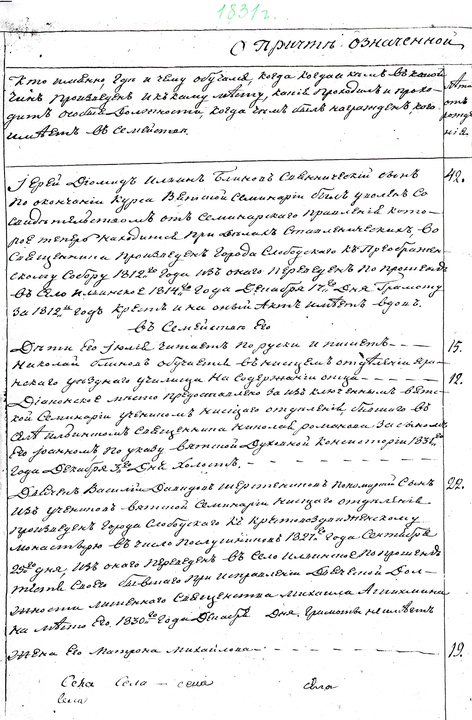 1831 г.
О Причтѣ означенной
Кто именно, гдѣ и чему обучался, когда и кѣмъ въ какой
чинъ произведенъ и къ какому мѣсту, какія проходилъ и прохо-
дитъ особыя должности, когда чѣмъ былъ награжденъ, кого
имѣетъ въ семействѣ.
Лѣта
отъ
рожде
нія.
Іерей Діомидъ Ильинъ Блиновъ Священническій сынъ 42.
по окончаніи курса Вятской Семинаріи былъ уволенъ со
свидѣтельствомъ отъ Семинарскаго Правленія кото-
рое теперь находится при дѣлахъ Ставленическихъ, во
Священника произведенъ города Слободскаго къ Преображен-
скому Собору 1812го года изъ онаго переведенъ по прошенію
въ село Ильинское 1814го года Декабря 17го дня. Грамоту
за 1812й годъ крестъ и на оный актъ имѣетъ
въ семействѣ его
Дѣти его Юлія читаетъ по руски и пишетъ 15.
Николай Блиновъ обучается въ нисшемъ отдѣленіи Яран-
скаго уѣзднаго училища на содержаніи отца 12.
Діаконское мѣсто предоставлено за изключеннымъ вят-
кой Семинаріи ученикомъ нисшаго отдѣленія, бывшаго въ
селѣ Ильинскомъ Священника Николая Романова
по указу Вятской Духовной Консисторіи 1831го
года Декабря дня холостъ.
Дьячекъ Василій Давидовъ Шерстенниковъ Пономарскій сынъ 22.
изъ учениковъ вятской Семинаріи нисшаго отдѣленія
произведенъ города Слободскаго къ Крестовоздвиженскому
монастырю въ число послушниковъ 1827го года Сентября
дня, изъ онаго переведенъ въ село Ильинское по прошенію
на мѣсто своего бывшаго при исправленіи дьяческой дол-
жности лишеннаго священства Михаила
на мѣсто его 1830го года Декабря дня, грамоты не имѣетъ
Жена его Матрона Михайлова 19.
Села Села — села села
Села